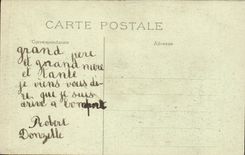 CARTE POSTALE
Correspondance
Adresse
grand père
et grand mère
et tante
je viens vous di
re que je suis
arivé a bon port
Robert
Donzelle